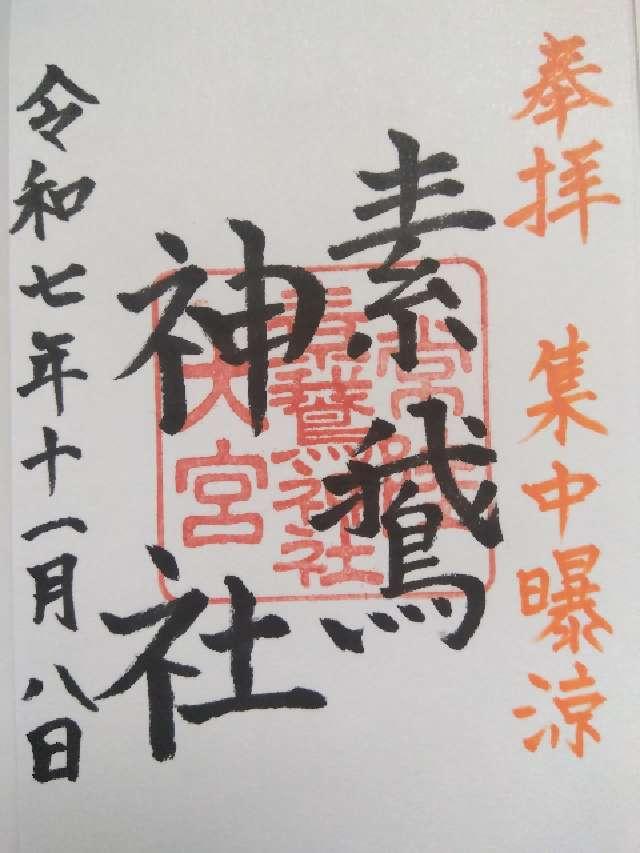 奉拝 集中曝涼
素鵞
神社
令和七年十一月八日
常陸
素鵞神社
大宮